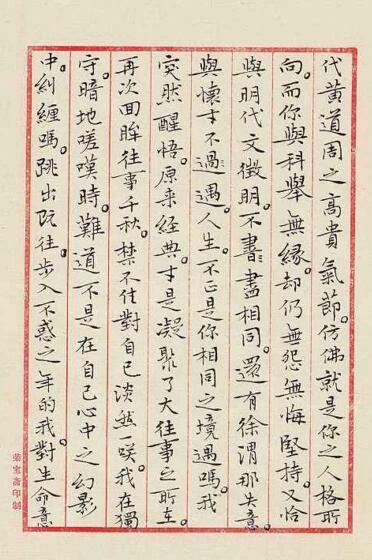 代黃道周之高貴氣節。仿佛就是你之人格所
向。而你與科舉無緣。却仍無怨無悔堅持。又恰
與明代文徵明。不書盡相同。還有徐渭那失意。
與懷才不過遇人生。不正是你相同之境遇嗎。我
突然醒悟。原来經典。才是凝聚了大往事之所在。
再次回眸往事千秋。禁不住對自己淡然一咲。我在獨
守暗地嗟嘆時。難道不是在自己心中之幻影
中糾纏嗎。跳出既往。步入不惑之年的我。對生命意
榮宝斋印制